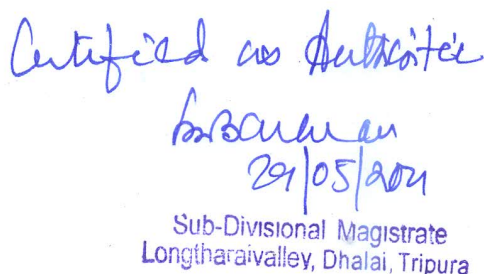 Certified as Authentic
29/05/2021
Sub-Divisional Magistrate
Longtharaivalley, Dhalai, Tripura